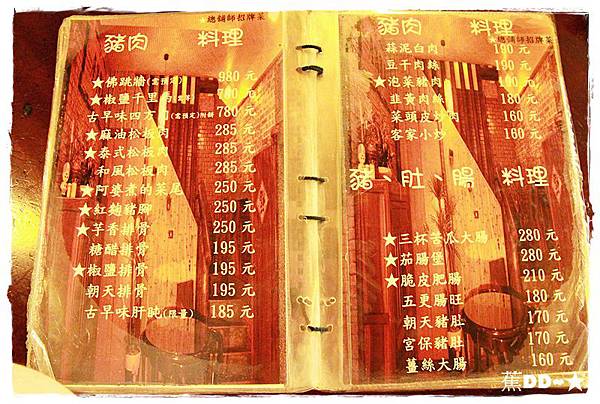 總鋪師招牌菜
豬肉 料理
★佛跳牆(需預定) 980 元
★椒鹽千里 元
古早味四方 (需預定)附餅 780 元
★麻油松板肉 285 元
★泰式松板肉 285 元
和風松板肉 285 元
★阿婆煮的菜尾 250 元
★紅麴豬腳 250 元
★芋香排骨 250 元
糖醋排骨 195 元
★椒鹽排骨 195 元
朝天排骨 195 元
古早味肝盹(限量) 185 元
★總鋪師招牌菜
豬肉 料理
蒜泥白肉 190 元
豆干肉絲 190 元
★泡菜豬肉 190 元
韭黃肉絲 180 元
菜頭皮炒肉 160 元
客家小炒 160 元
豬、肚、腸 料理
★三杯苦瓜大腸 280 元
★茄腸堡 280 元
★脆皮肥腸 210 元
五更腸旺 180 元
朝天豬肚 170 元
宮保豬肚 170 元
薑絲大腸 160 元
蕉DD~★